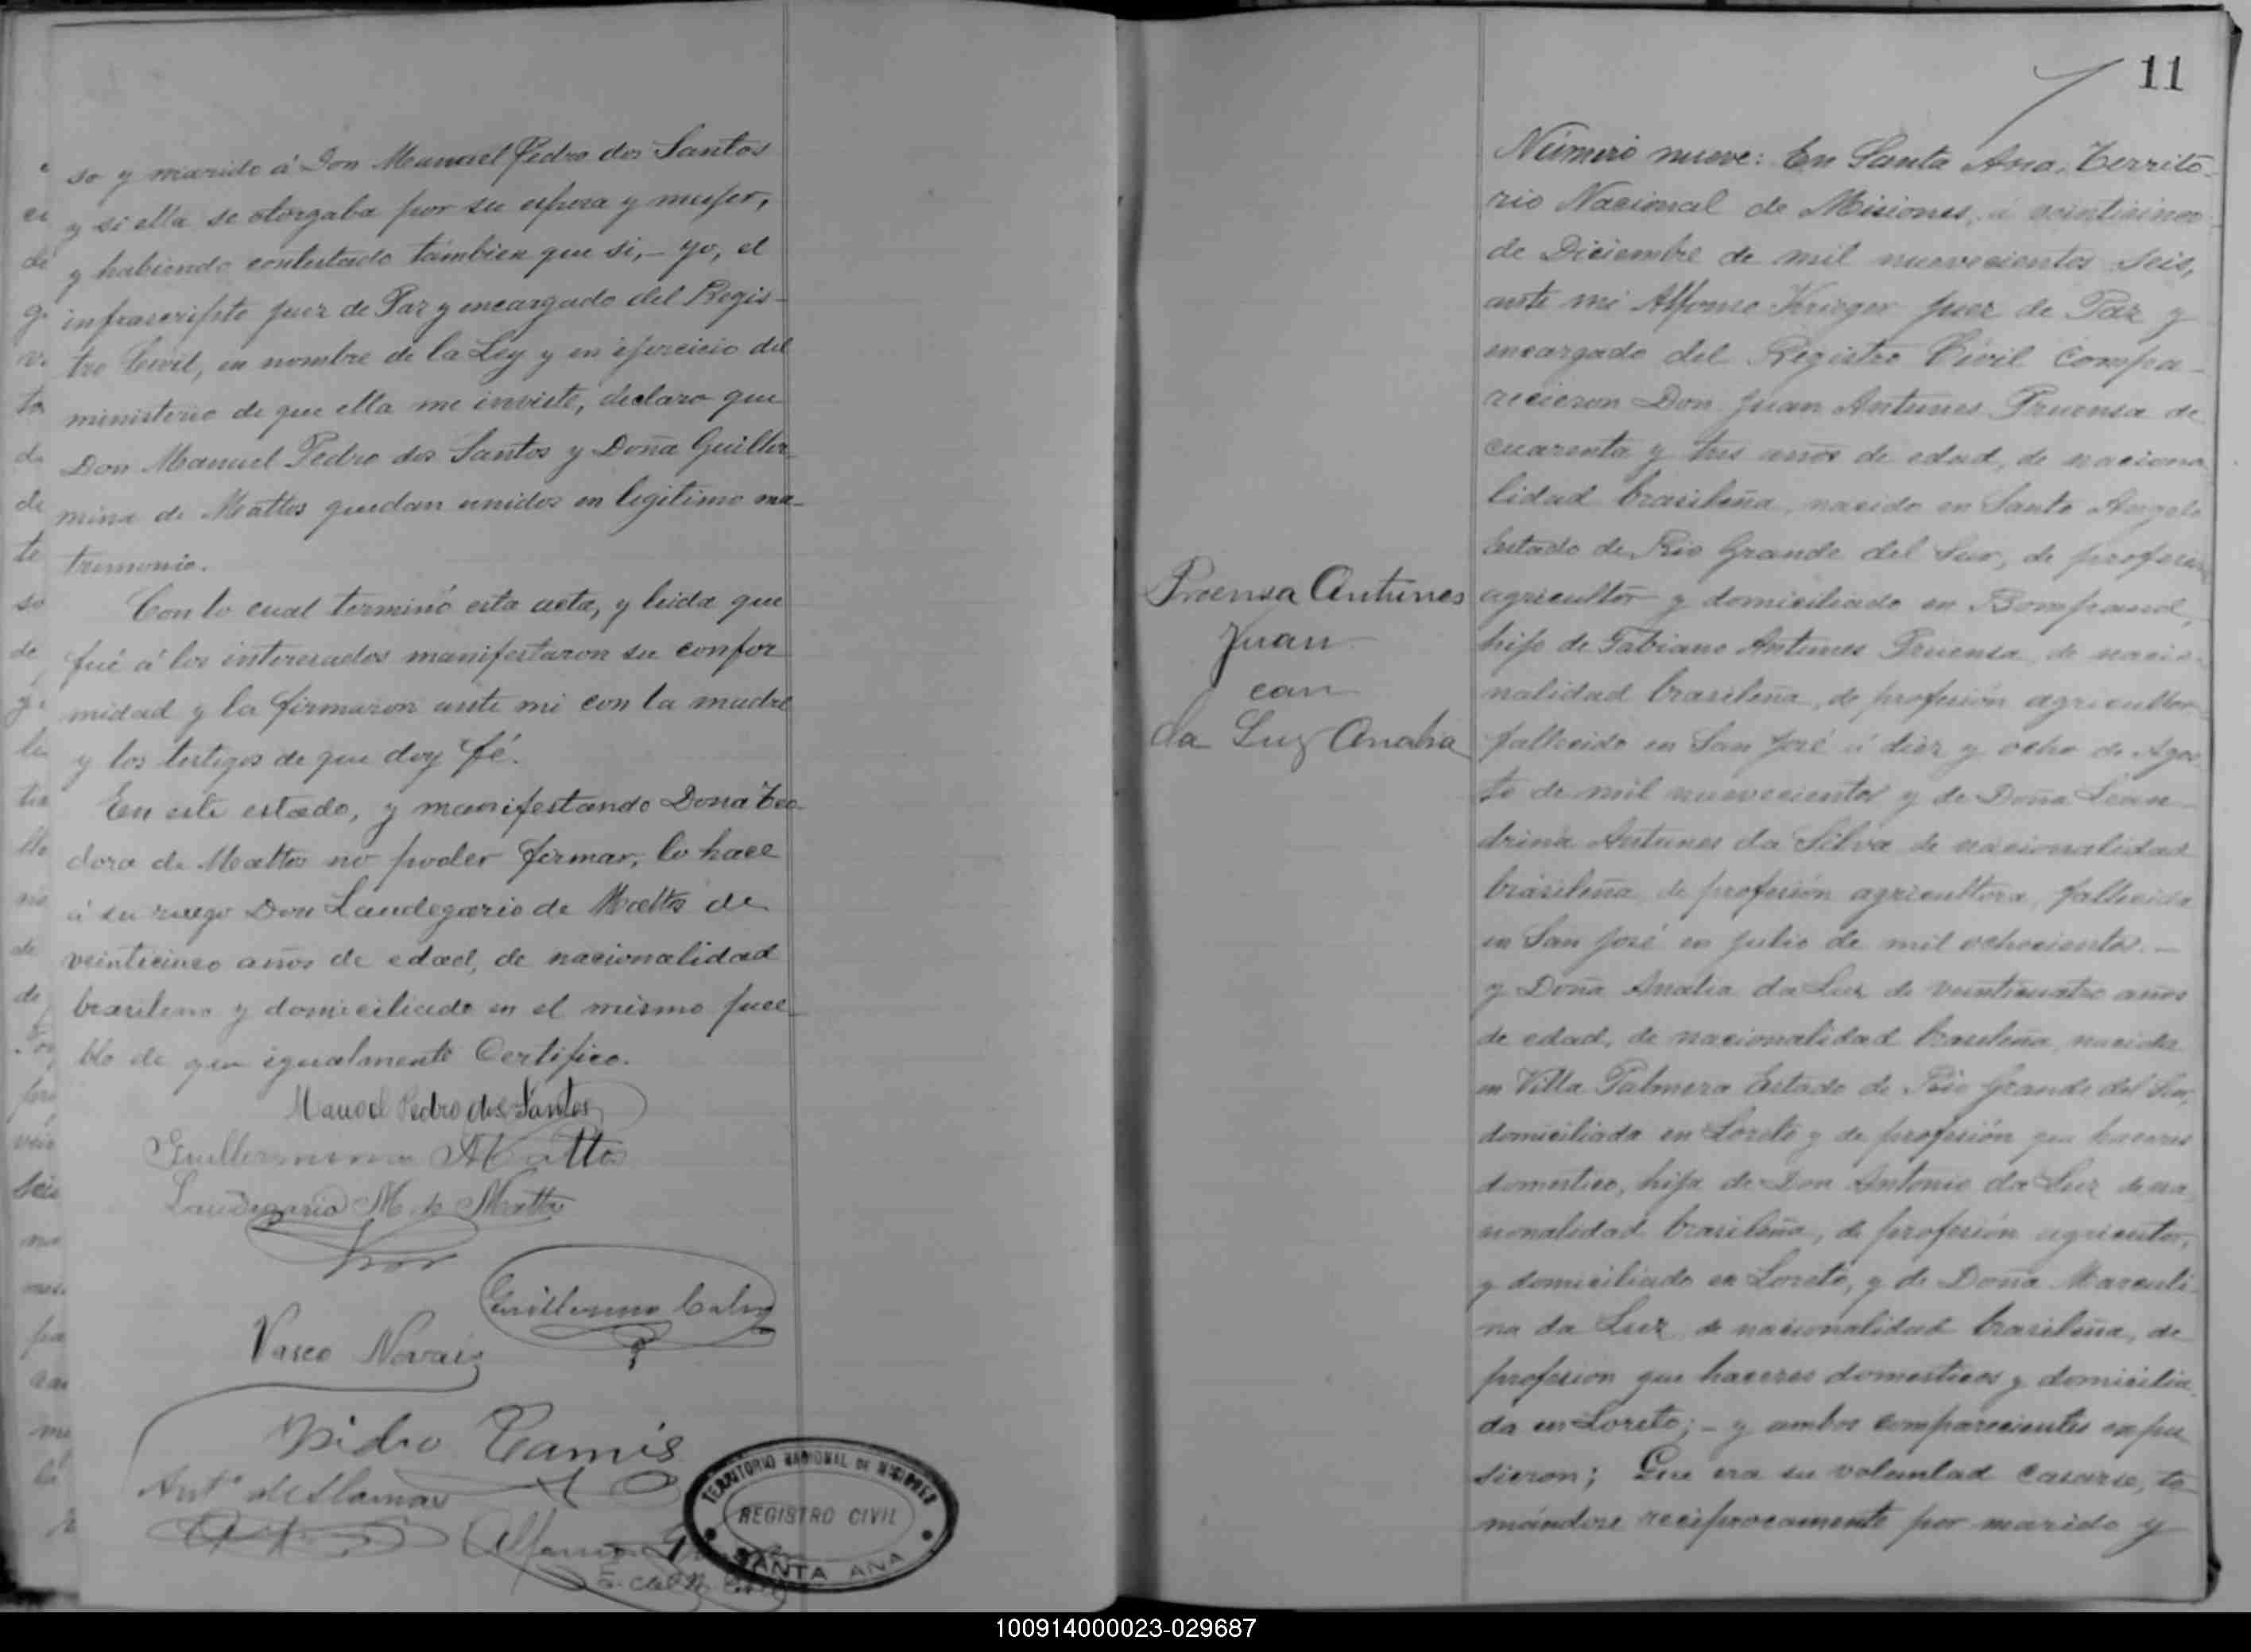 so y marido á Don Manuel Pedro dos Santos
y si ella se otorgaba por su esposa y mujer,
y habiendo contestado tambien que si, – yo, el
infrascripto Juez de Paz y encargado del Regis-
tro Civil, en nombre de la Ley y en ejercicio del
ministerio de que ella me inviste, declaro que
Don Manuel Pedro dos Santos y Doña Guiller-
mina de Mattos quedan unidos en legitimo ma-
trimonio.
Con lo cual terminó esta acta, y leida que
fué á los interesados manifestaron su confor
midad y la firmaron ante mi con la madre
y los testigos de que doy fé.
En este estado, y manifestando Dona Teo-
dora de Mattos no poder firmar, lo hace
á su ruego Don Laudegario de Mattos de
veinticinco años de edad, de nacionalidad
brasilena y domiciliado en el mismo pue-
blo de que igualmente Certifico.
Manoel Pedro dos Santos
Guillermina Mattos
Laudegario M de Mattos
Guillermo
Vasco Novais
Ant.º de Llamas
Alfonso
TERRITORIO NACIONAL DE MISIONES
REGISTRO CIVIL
SANTA ANA
11
Proensa Antunes
Juan
con
da Luz Analia
Número nueve: En Santa Ana, Territo-
rio Nacional de Misiones, á veinticinco
de Diciembre de mil nuevecientos seis,
ante mi Alfonso Krieger Juez de Paz y
encargado del Registro Civil Compa-
recieron Don Juan Antunes Pruensa de
cuarenta y tres años de edad, de naciona
lidad brasileña, nacido en Santo Angelo
Estado de Rio Grande del Sur, de profesion
agricultor y domiciliado en Bompland,
hijo de Fabiano Antunes Pruensa, de nacio-
nalidad brasileña, de profesión agricultor
fallecido en San José á diez y ocho de Agos-
to de mil nuevecientos y de Doña Lean-
drina Antunes da Silva de nacionalidad
brasileña, de profesión agricultora, fallecida
en San José en Julio de mil ochocientos. –
y Doña Analia da Luz de veinticuatro años
de edad, de nacionalidad brasileña, nacida
en Villa Palmera Estado de Rio Grande del Sur,
domiciliada en Loreto y de profesión que haceres
domestico, hija de Don Antonio da Luz de na
cionalidad brasileña, de profesión agricultor,
y domiciliado en Loreto, y de Doña Marculi-
na da Luz de nacionalidad brasileña, de
profesion que haceres domesticos y domicilia-
da en Loreto; – y ambos comparecientes expu
sieron; Que era su voluntad casarse, to-
mándose reciprocamente por marido y
100914000023-029687